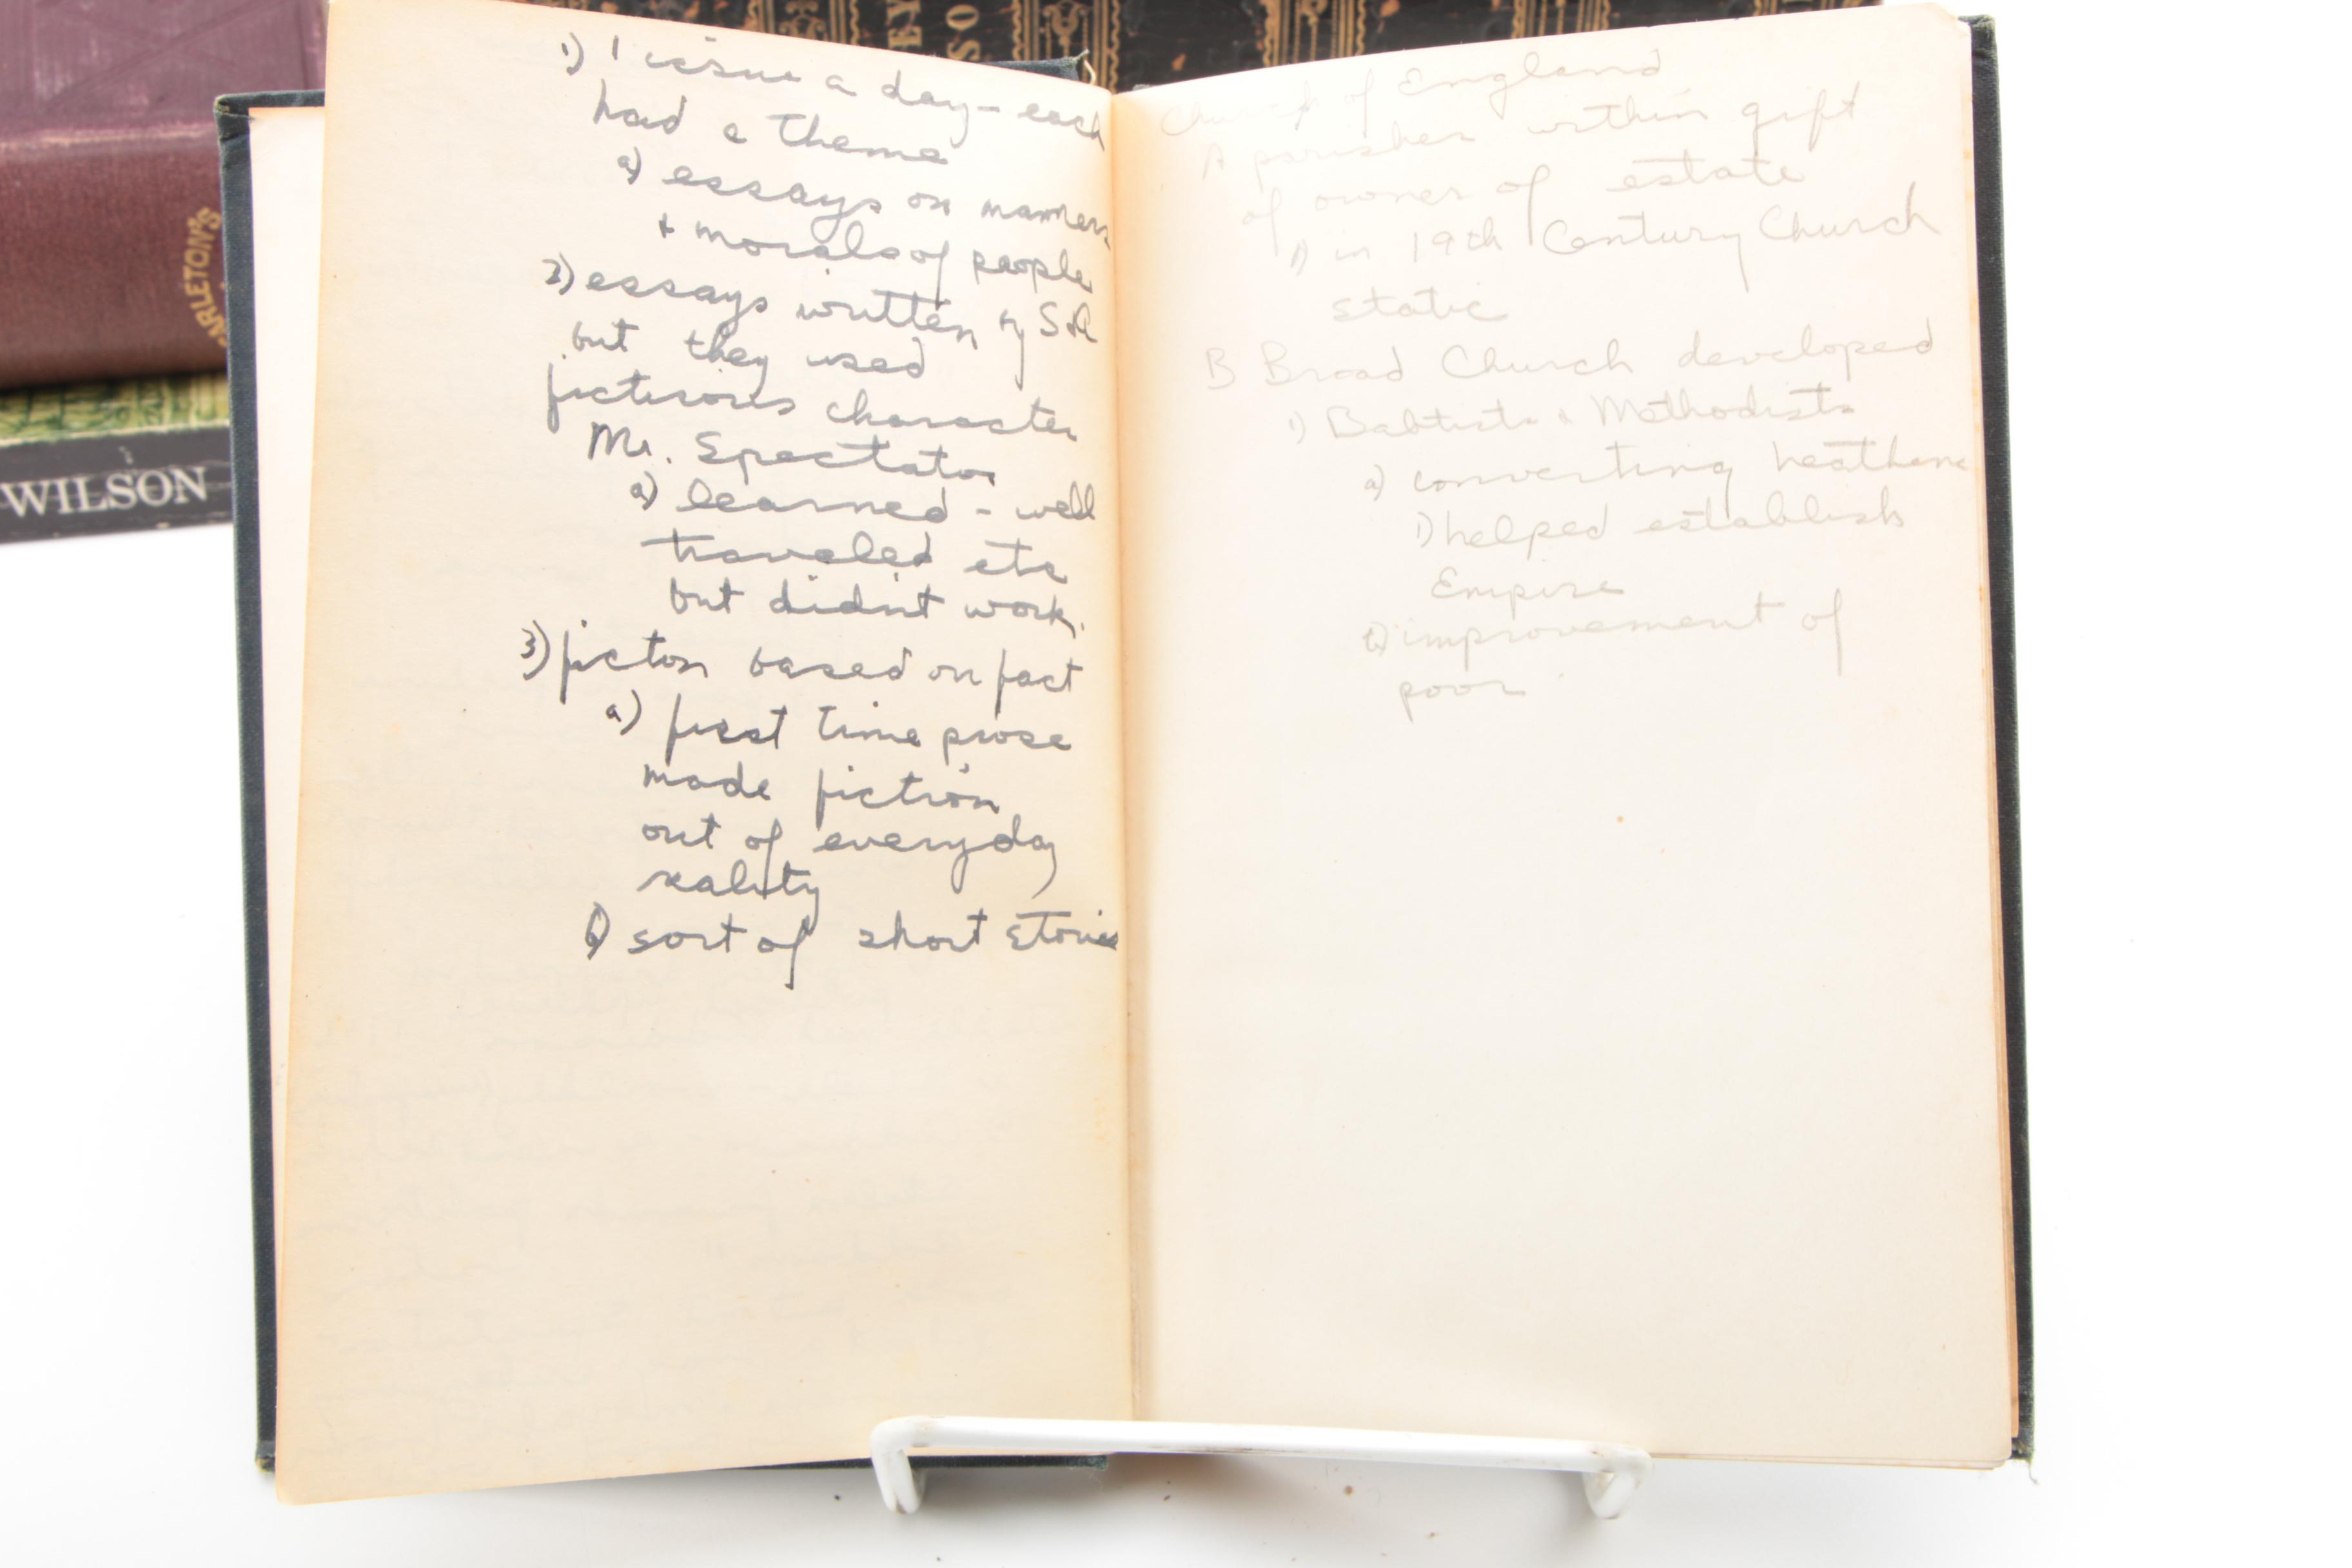 1) 1 issue a day - each
had a theme
a) essays on manners
+ morals of people
2) essays written by S+A
but they used
ficticious character
Mr. Spectator
a) learned - well
traveled etc
but didn't work.
3) ficton based on fact
a) first time prose
made fiction
out of everyday
reality
b) sort of short stories
Church of England
A parishes within gift
of owner of estate
1) in 19th Century Church
static
B Broad Church developed
1) Babtists + Methodists
a) converting heathens
1) helped establish
Empire
b) improvement of
poor
ARLETON'S
WILSON
EY
SO